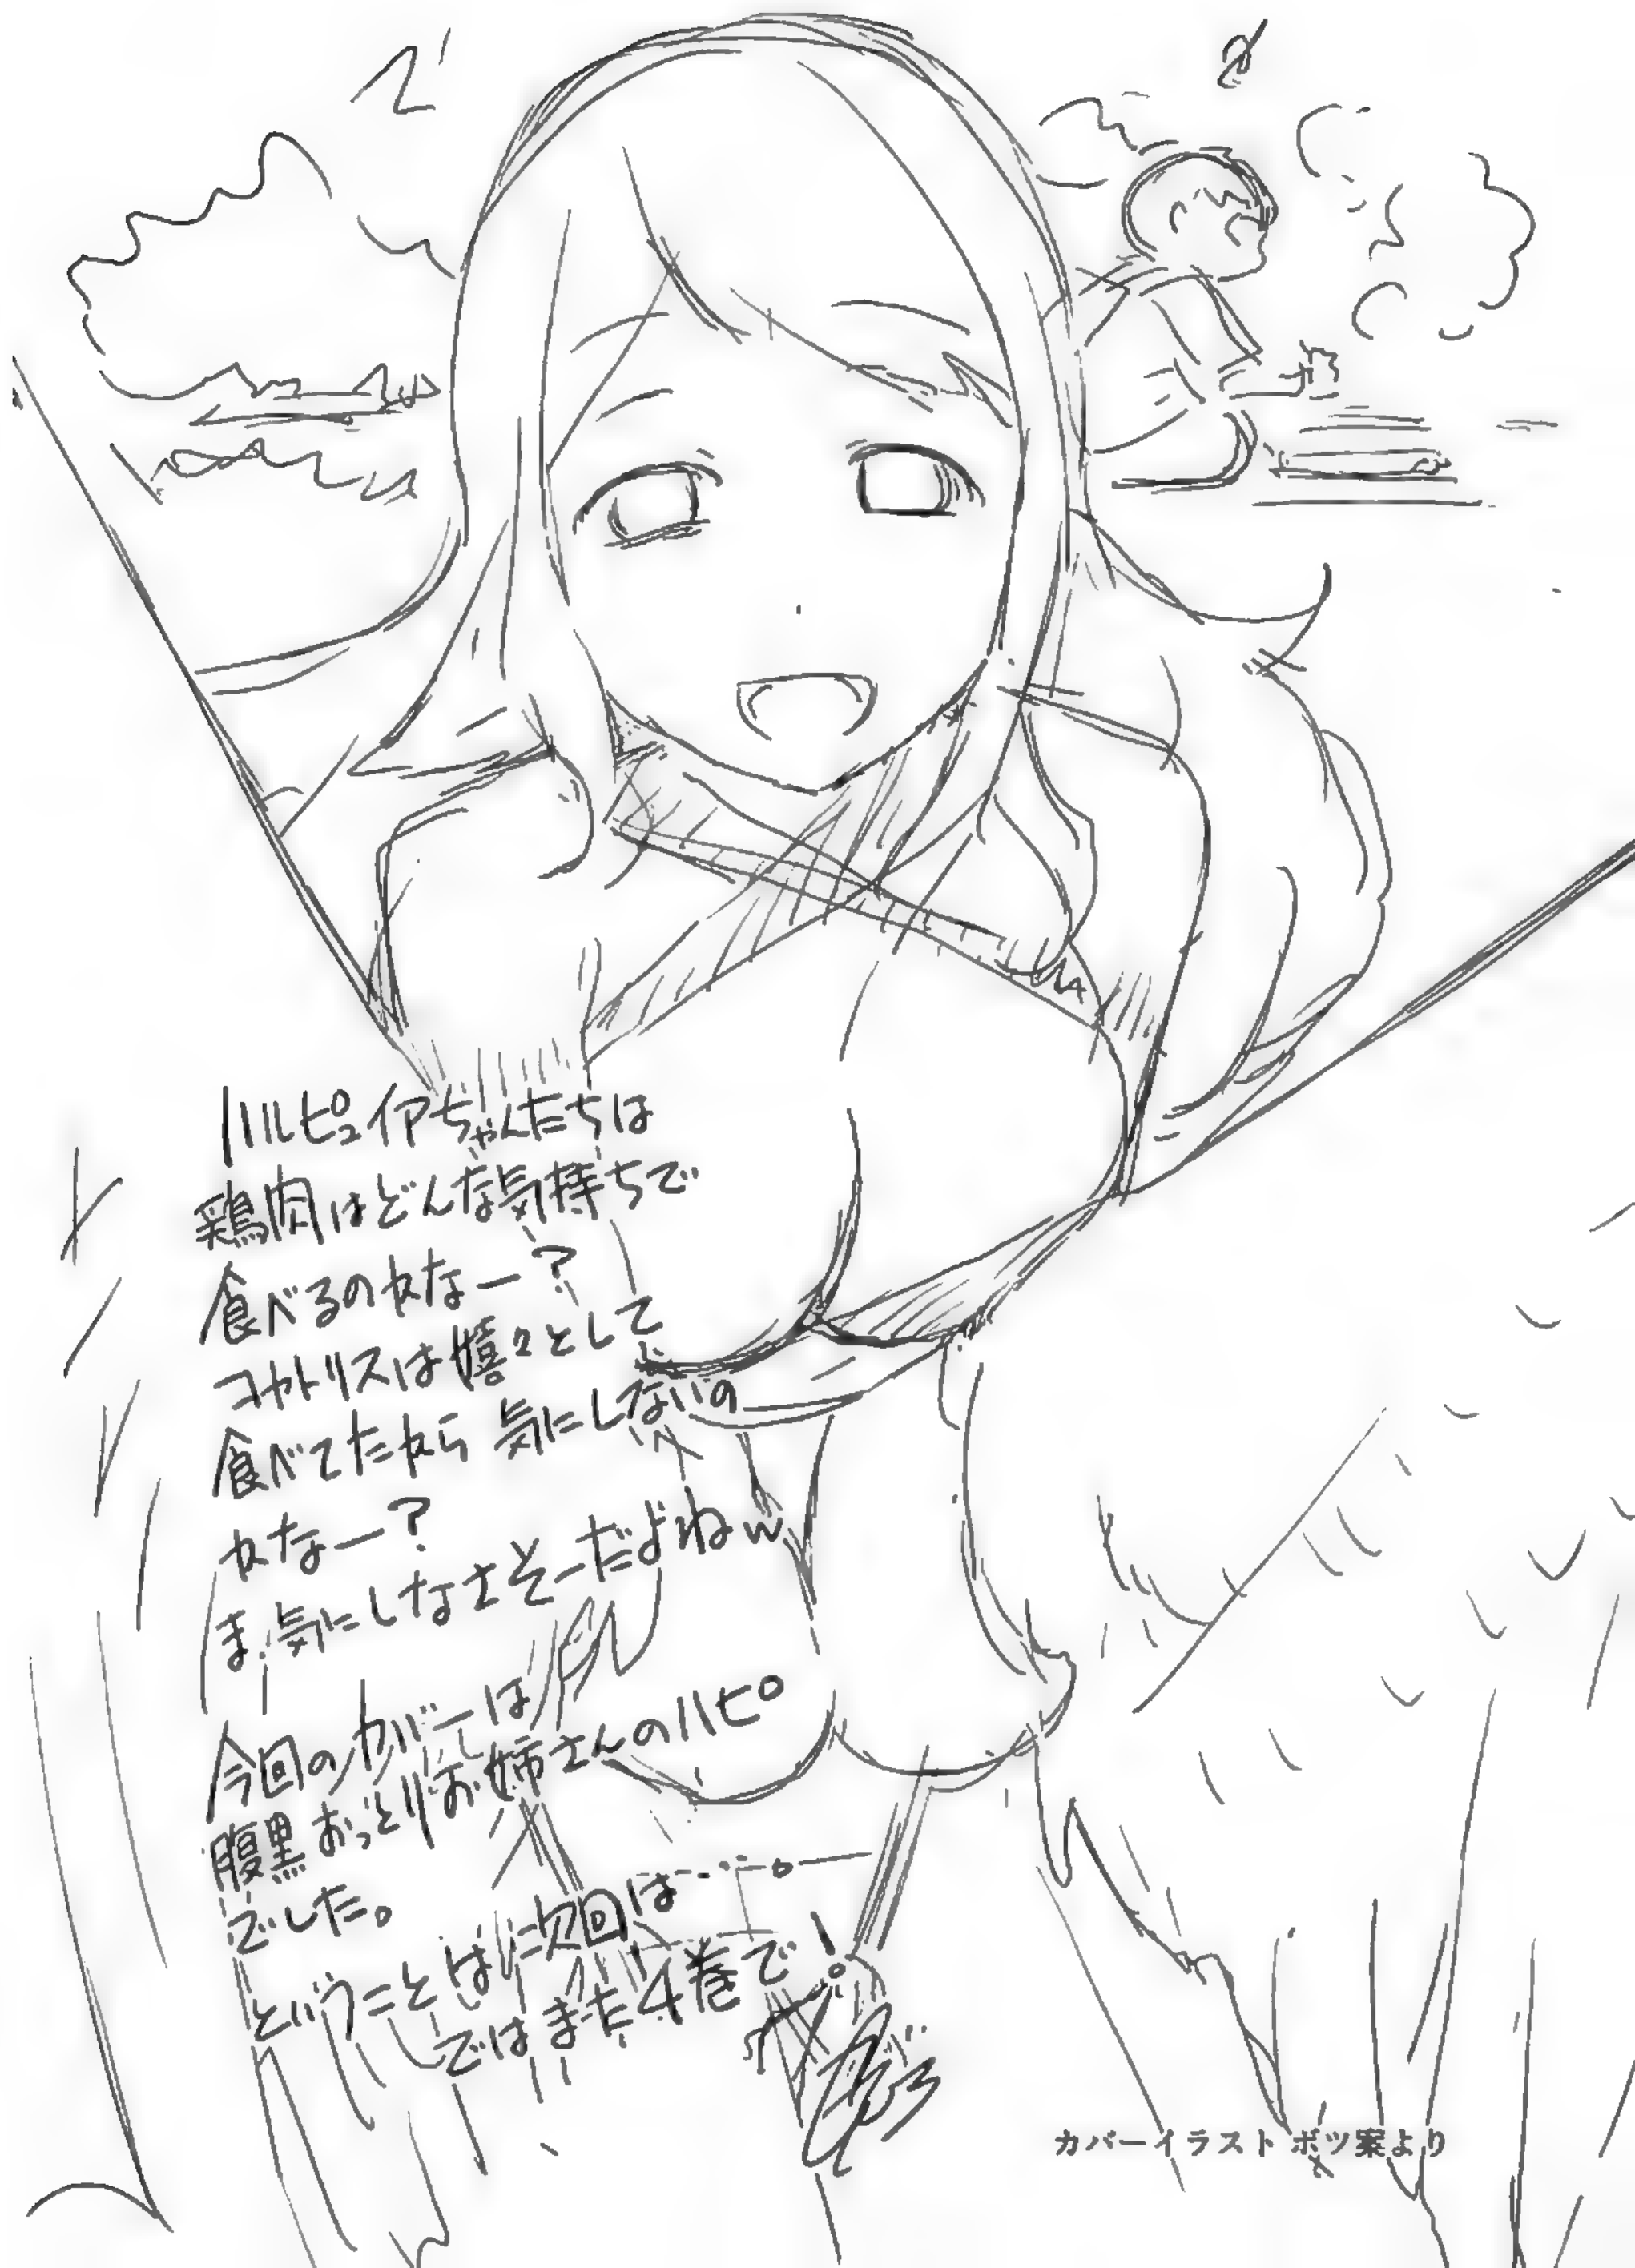 ハルピュイアちゃんたちは
鶏肉はどんな気持ちで
食べるのかなー？
コカトリスは嬉々として
食べてたから 気にしないの
かなー？
ま、気にしなさそーだよねw
今回のカバーは
腹黒おっとりお姉さんのハピ
でした。
ということは次回は……。
ではまた4巻で！
カバーイラスト ボツ案より